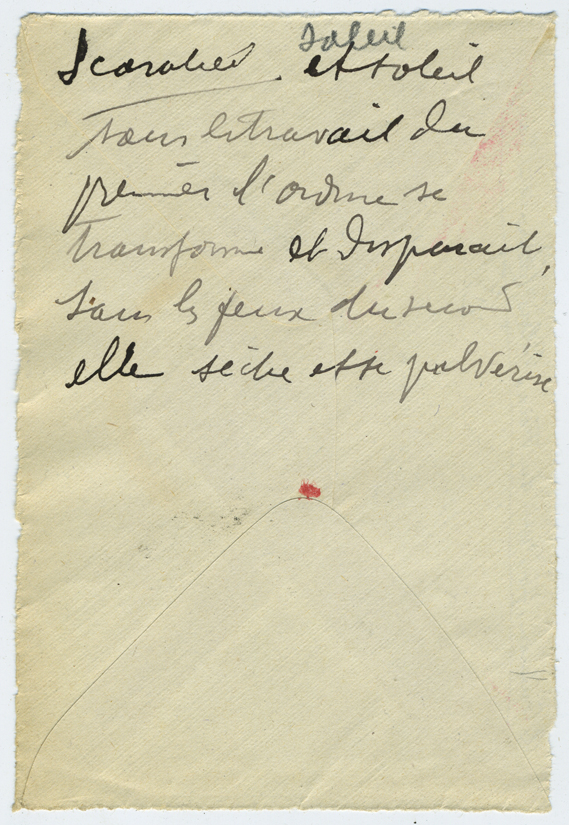 soleil
Scarabée et soleil
sous le travail du
premier l'ordure se
transforme et disparait,
sous les feux du second
elle sèche et se pulvérise